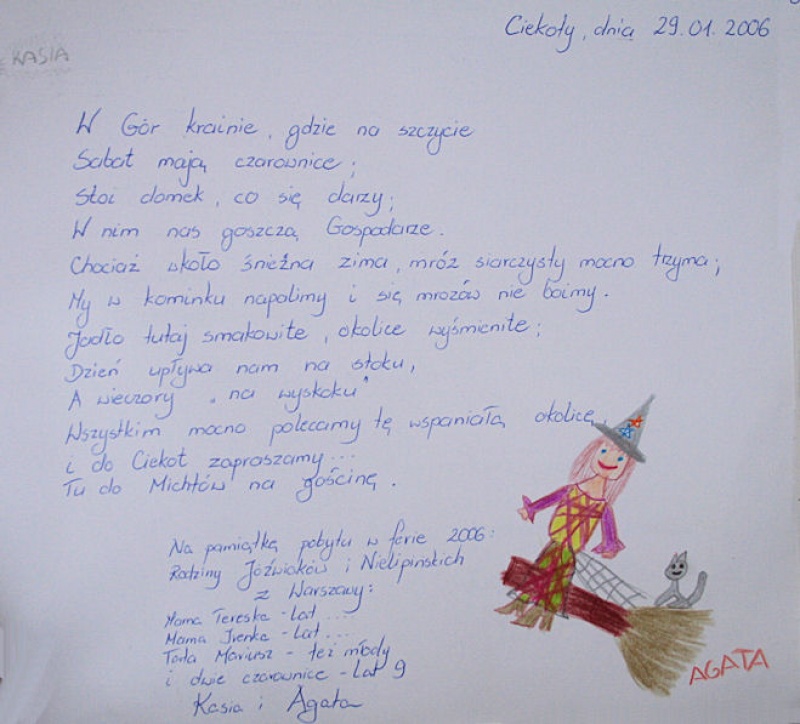 Ciekoty, dnia 29.01.2006
KASIA
W Gór krainie, gdzie na szczycie
Sabat mają czarownice;
Stoi domek, co się darzy;
W nim nas goszczą Gospodarze.
Chociaż wkoło śnieżna zima, mróz siarczysty mocno trzyma;
My w kominku napalimy i się mrozów nie boimy.
Jadło tutaj smakowite, okolice wyśmienite;
Dzień upływa nam na stoku,
A wieczory "na wyskoku"
Wszystkim mocno polecamy tę wspaniałą okolicę,
i do Ciekot zapraszamy...
Tu do Michtów na gościnę.
Na pamiątkę pobytu w ferie 2006:
Rodziny Jóźwiaków i Nielipińskich
z Warszawy:
Mama Tereska - lat ....
Mama Irenka - lat ....
Tata Mariusz - też młody
i dwie czarownice - lat 9
Kasia i Agata
AGATA